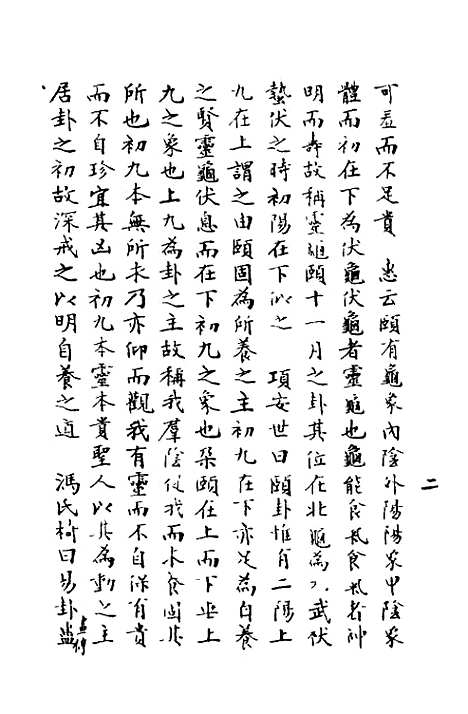 可羞而不足貴　惠云頤有龜象內陰外陽陽象甲陰象
體而初在下為伏龜伏龜者靈龜也龜能食氣食氣者神
明而壽故稱靈龜頤十一月之卦其位在北龜為 武伏
蟄伏之時初陽在下以之　項安世曰頤卦惟有二陽上
九在上謂之由頤固為所養之主初九在下亦足為自養
之賢靈龜伏息而在下初九之象也朶頤在上而下垂上
九之象也上九為卦之主故稱我羣陰仰我而求食固其
所也初九本無所求乃亦仰而觀我有靈而不自保有貴
而不自珍宜其凶也初九本靈本貴聖人以其為動之主
居卦之初故深戒之以明自養之道　馮氏椅曰易卦
二